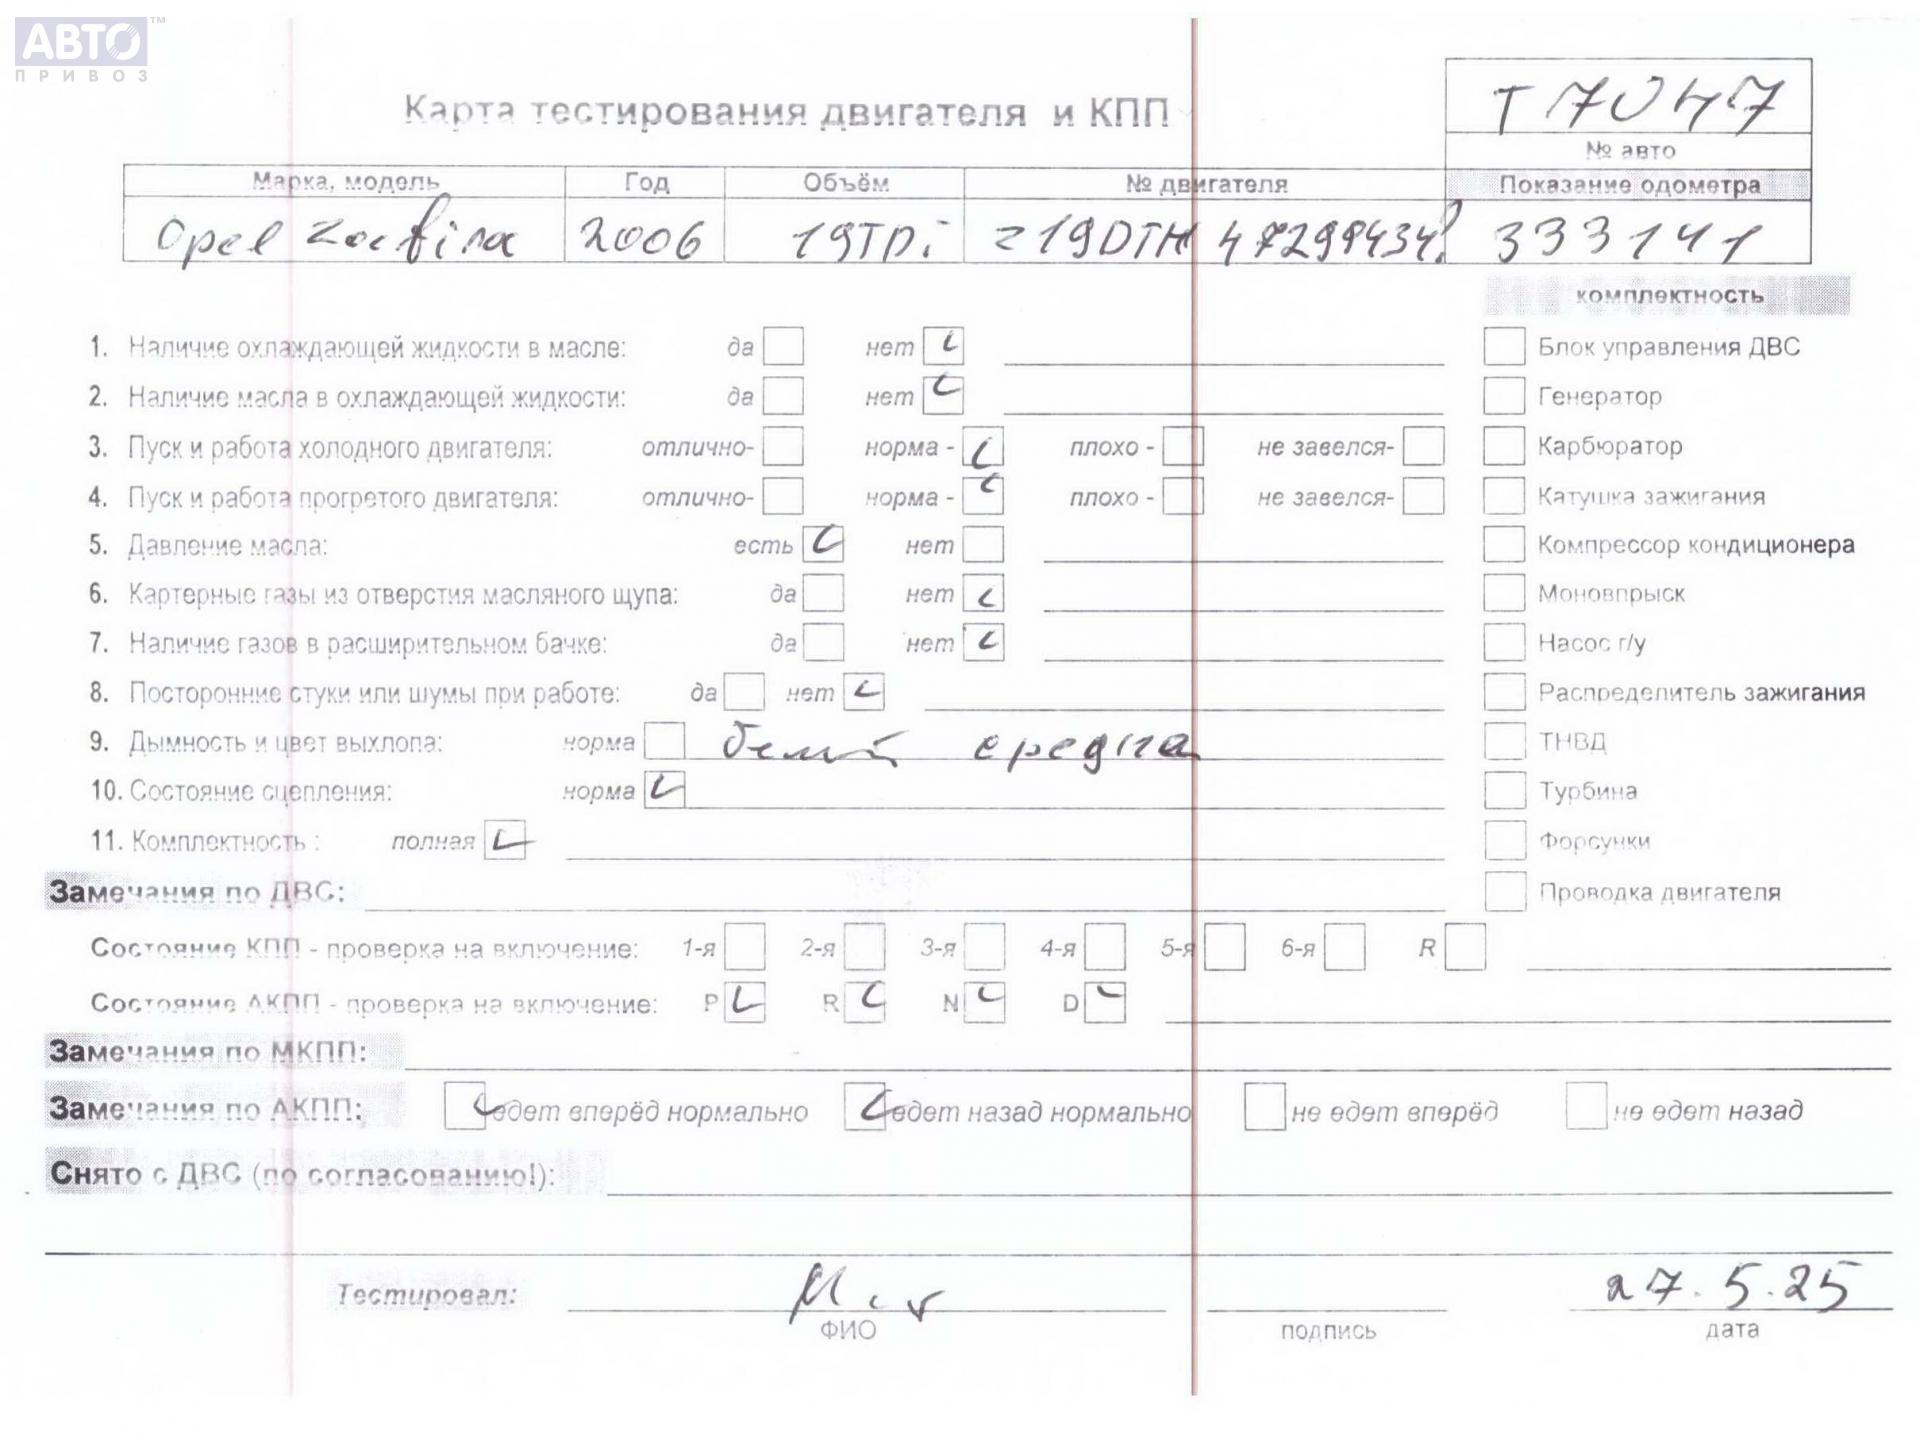 АВТО™
ПРИВОЗ
Карта тестирования двигателя и КПП
Т7047
№ авто
Марка, модель Год Объём № двигателя Показание одометра
Opel Zafira 2006 19TDi z19DTH 333141
комплектность
1. Наличие охлаждающей жидкости в масле: да нет Блок управления ДВС
2. Наличие масла в охлаждающей жидкости: да нет Генератор
3. Пуск и работа холодного двигателя: отлично- норма - плохо - не завелся- Карбюратор
4. Пуск и работа прогретого двигателя: отлично- норма - плохо - не завелся- Катушка зажигания
5. Давление масла: есть нет Компрессор кондиционера
6. Картерные газы из отверстия масляного щупа: да нет Моновпрыск
7. Наличие газов в расширительном бачке: да нет Насос г/у
8. Посторонние стуки или шумы при работе: да нет Распределитель зажигания
9. Дымность и цвет выхлопа: норма ТНВД
10. Состояние сцепления: норма Турбина
11. Комплектность : полная Форсунки
Замечания по ДВС: Проводка двигателя
Состояние КПП - проверка на включение: 1-я 2-я 3-я 4-я 5-я 6-я R
Состояние АКПП - проверка на включение: P R N D
Замечания по МКПП:
Замечания по АКПП: едет вперёд нормально едет назад нормально не едет вперёд не едет назад
Снято с ДВС (по согласованию!):
Тестировал: 27.5.25
ФИО подпись дата